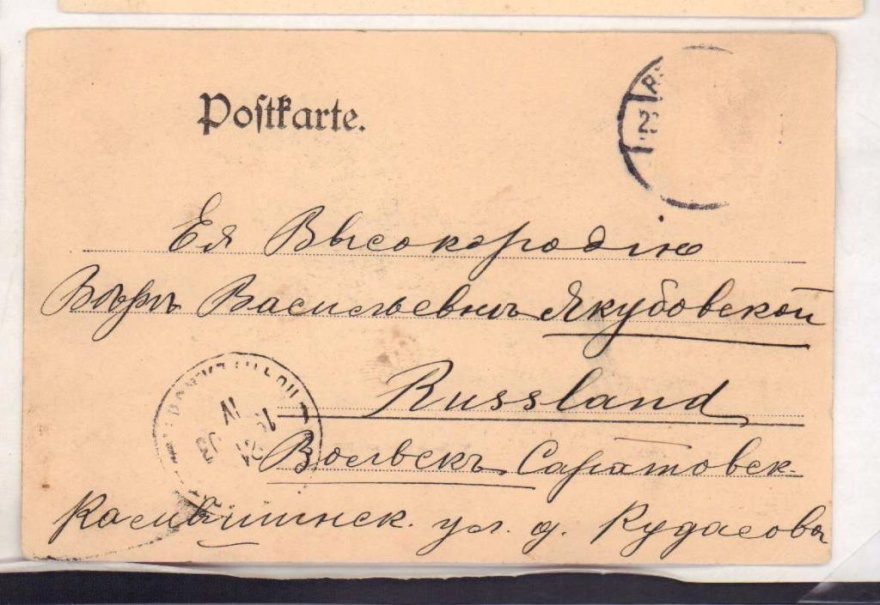 Postkarte.
Ея Высокородiю
Вѣрѣ Васильевнѣ Якубовской
Russland
Вольскъ Саратовск.
Камышинск. ул. д. Кудасова